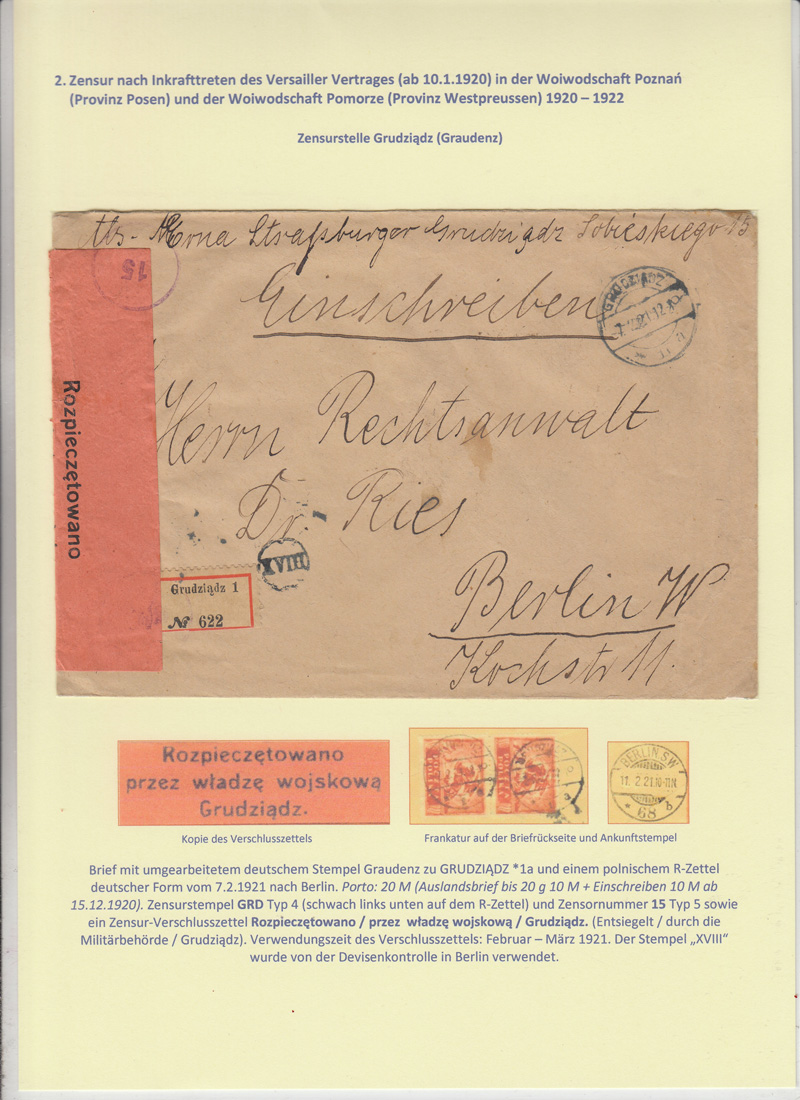 2. Zensur nach Inkrafttreten des Versailler Vertrages (ab 10.1.1920) in der Woiwodschaft Poznań
(Provinz Posen) und der Woiwodschaft Pomorze (Provinz Westpreussen) 1920 – 1922
Zensurstelle Grudziądz (Graudenz)
Abs- Erna Straßburger Grudziądz Sobieskiego 15
15
Einschreiben
GRUDZIĄDZ
Rozpieczętowano
Herrn Rechtsanwalt
Dr. Ries
XVIII
Grudziądz 1
№ 622
Berlin W
Kochstr 11.
Rozpieczętowano
przez władzę wojskową
Grudziądz.
BERLIN.SW
11. 2.21.10-11N.
* 68 b
Kopie des Verschlusszettels
Frankatur auf der Briefrückseite und Ankunftstempel
Brief mit umgearbeitetem deutschem Stempel Graudenz zu GRUDZIĄDZ *1a und einem polnischem R-Zettel
deutscher Form vom 7.2.1921 nach Berlin. Porto: 20 M (Auslandsbrief bis 20 g 10 M + Einschreiben 10 M ab
15.12.1920). Zensurstempel GRD Typ 4 (schwach links unten auf dem R-Zettel) und Zensornummer 15 Typ 5 sowie
ein Zensur-Verschlusszettel Rozpieczęťowano / przez władzę wojskową / Grudziądz. (Entsiegelt / durch die
Militärbehörde / Grudziądz). Verwendungszeit des Verschlusszettels: Februar – März 1921. Der Stempel „XVIII“
wurde von der Devisenkontrolle in Berlin verwendet.